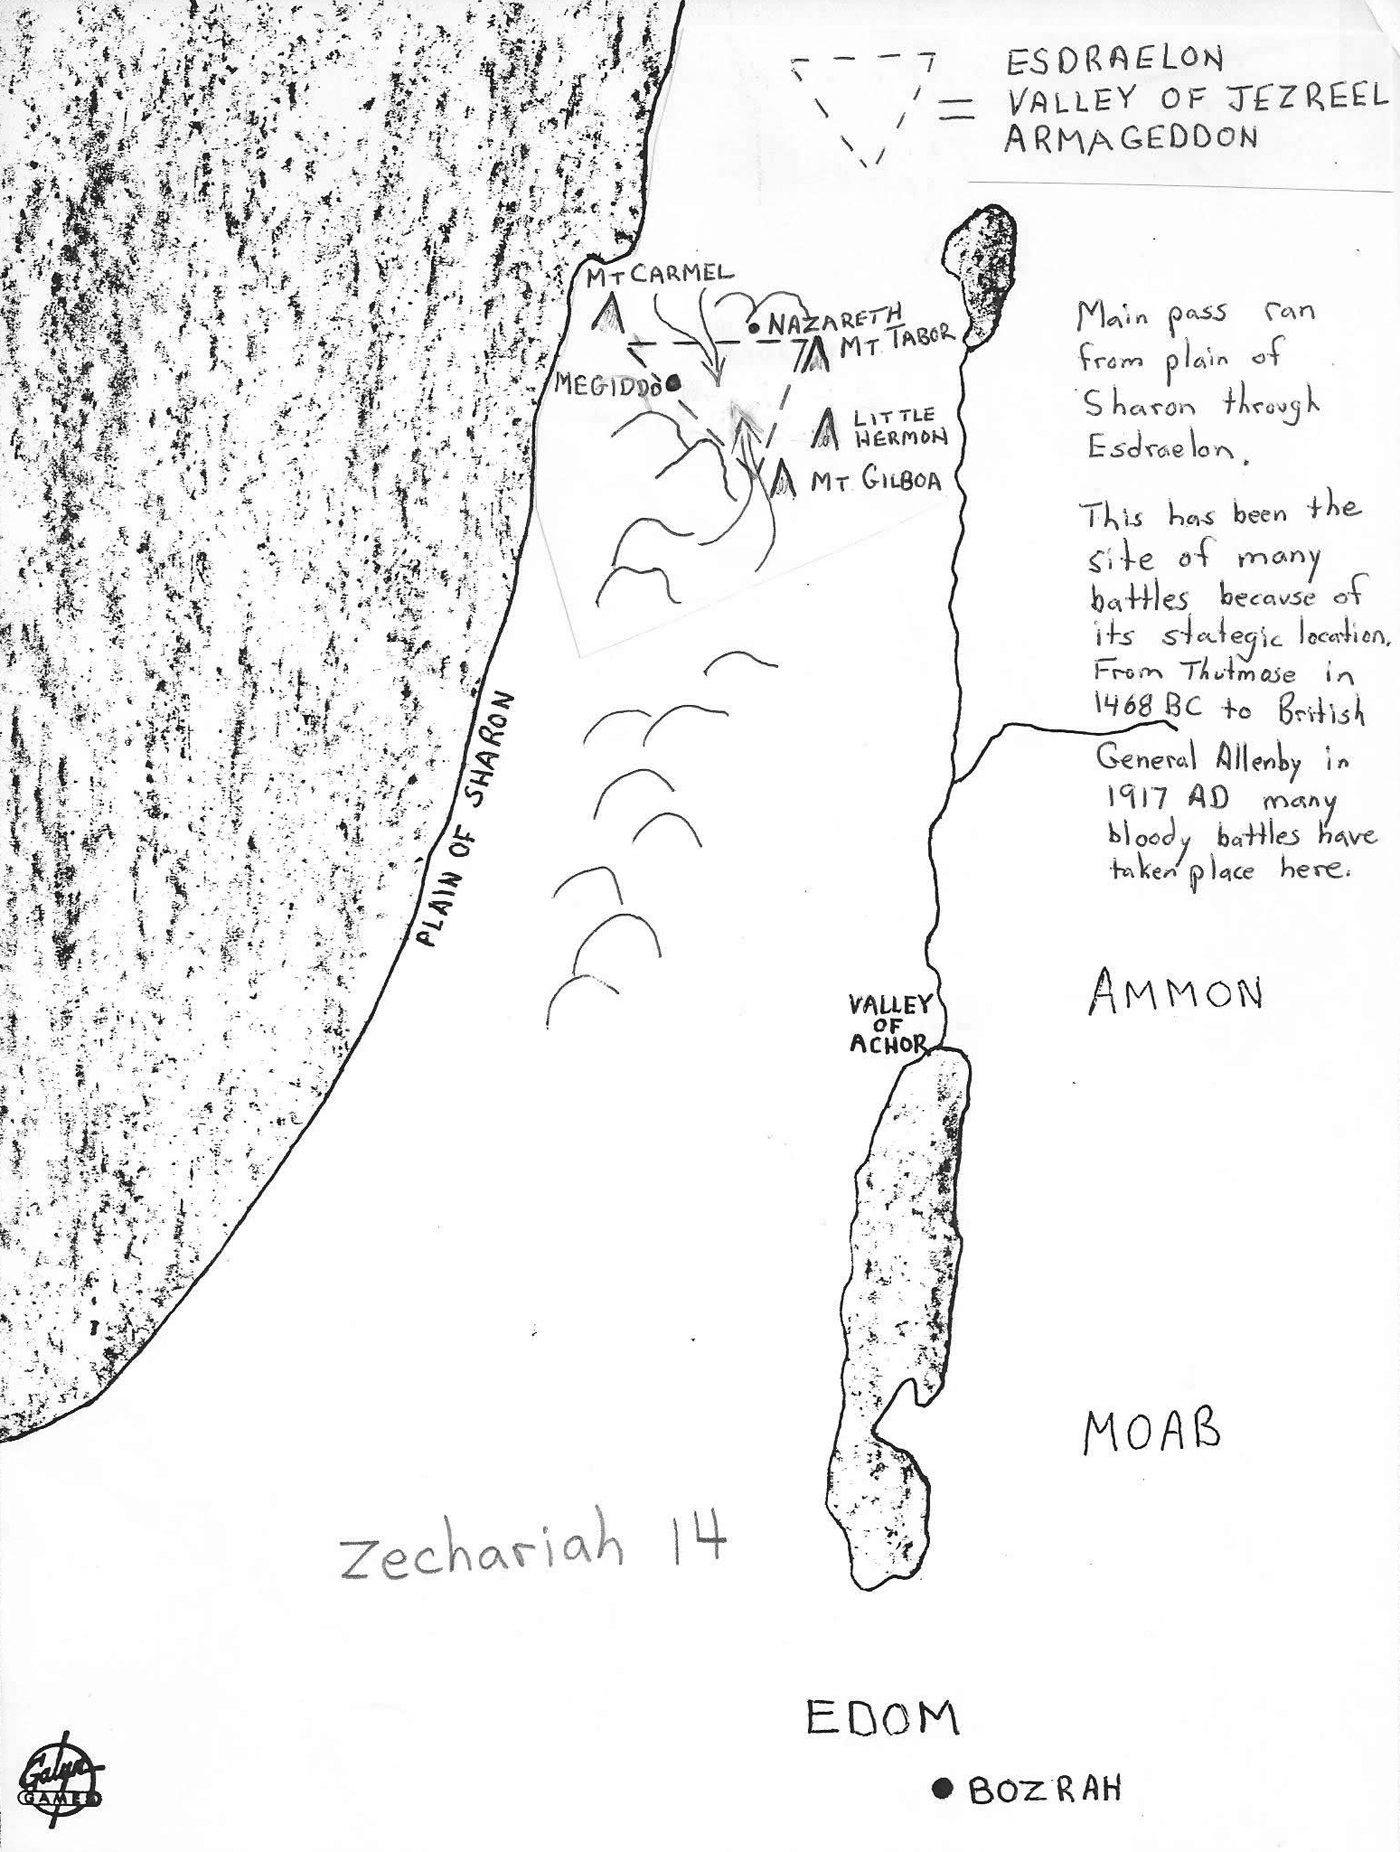 ESDRAELON
VALLEY OF JEZREEL
=
ARMAGEDDON
MT CARMEL
NAZARETH
MT TABOR
MEGIDDO
LITTLE
HERMON
MT GILBOA
Main pass ran
from plain of
Sharon through
Esdraelon.
This has been the
site of many
battles because of
its stategic location.
From Thutmose in
1468 BC to British
General Allenby in
1917 AD many
bloody battles have
taken place here.
PLAIN OF SHARON
AMMON
VALLEY
OF
ACHOR
MOAB
Zechariah 14
EDOM
BOZRAH
Galyn
GAMES